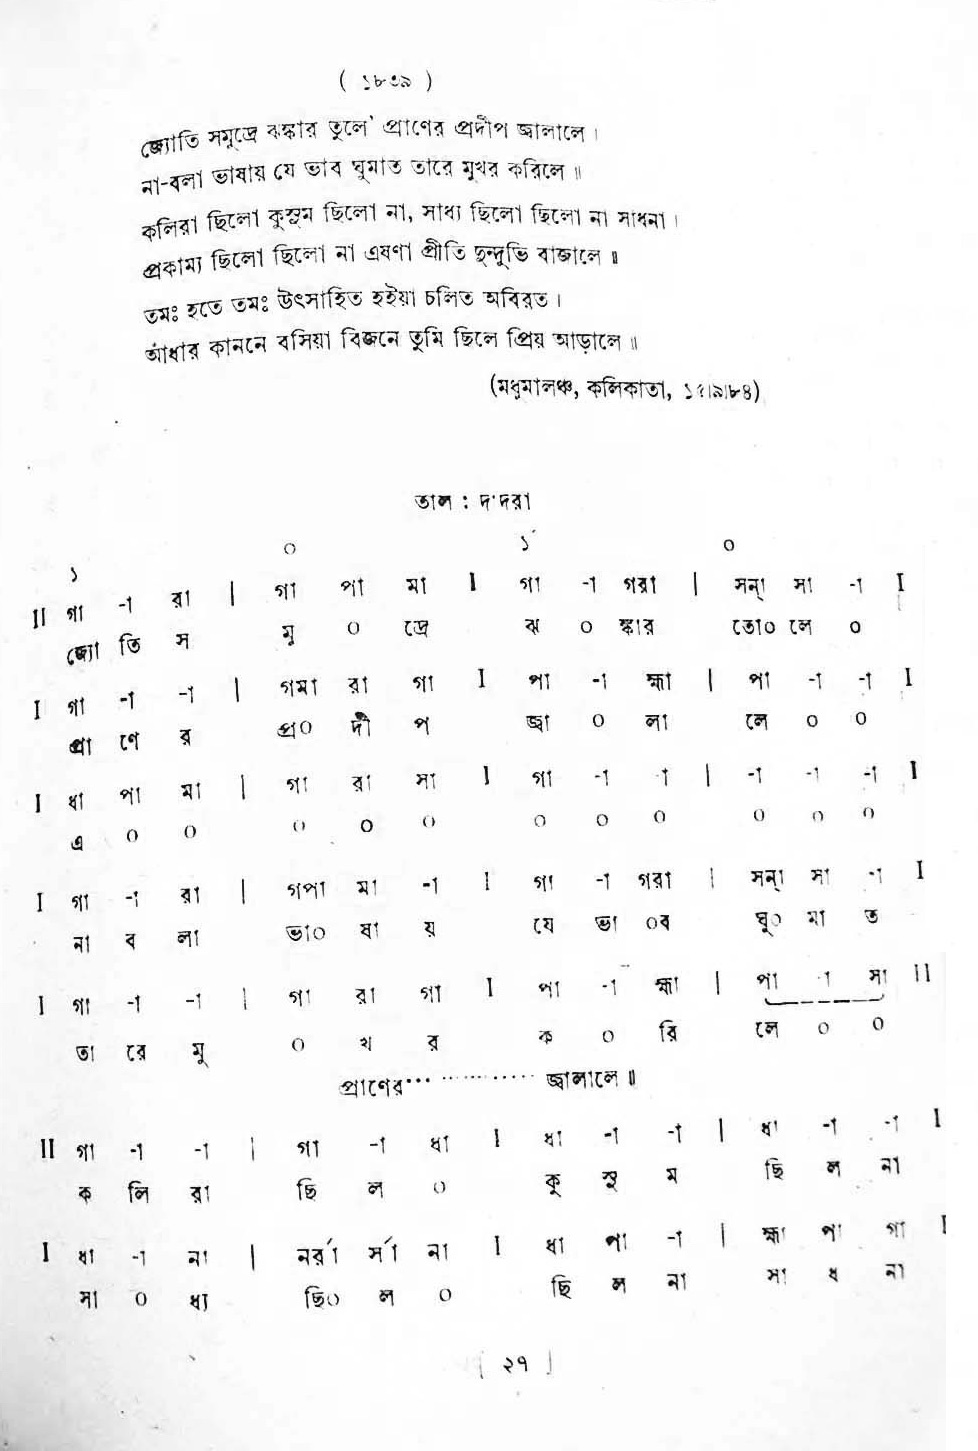 ( ১৮৩৯ )
জ্যোতি সমুদ্রে ঝঙ্কার তুলে' প্রাণের প্রদীপ জ্বালালে ।
না-বলা ভাষায় যে ভাব ঘুমাত তারে মুখর করিলে ॥
কলিরা ছিলো কুসুম ছিলো না, সাধ্য ছিলো ছিলো না সাধনা ।
প্রকাম্য ছিলো ছিলো না এষণা প্রীতি দুন্দুভি বাজালে ॥
তমঃ হতে তমঃ উৎসাহিত হইয়া চলিত অবিরত ।
আঁধার কাননে বসিয়া বিজনে তুমি ছিলে প্রিয় আড়ালে ॥
(মধুমালঞ্চ, কলিকাতা, ১৫।৯।৮৪)
তাল : দাদরা
১ ০ ১´ ০
II গা -া রা | গা পা মা I গা -া গরা | সন্া সা -া I
জ্যো তি স মু ০ দ্রে ঝ ০ ঙ্কার তো০ লে ০
I গা -া -া | গমা রা গা I পা -া হ্মা | পা -া -া I
প্রা ণে র প্র০ দী প জ্বা ০ লা লে ০ ০
I ধা পা মা | গা রা সা I গা -া -া | -া -া -া I
এ ০ ০ ০ ০ ০ ০ ০ ০ ০ ০ ০
I গা -া রা | গপা মা -া I গা -া গরা | সন্া সা -া I
না ব লা ভা০ ষা য় যে ভা ০ব ঘু০ মা ত
I গা -া -া | গা রা গা I পা -া হ্মা | পা -া সা II
তা রে মু ০ খ র ক ০ রি লে ০ ০
প্রাণের··· ············ জ্বালালে ॥
II গা -া -া | গা -া ধা I ধা -া -া | ধা -া -া I
ক লি রা ছি ল ০ কু সু ম ছি ল না
I ধা -া না | নর্রা র্সা না I ধা পা -া | হ্মা পা গা I
সা ০ ধ্য ছি০ ল ০ ছি ল না সা ধ না
[ ২৭ ]